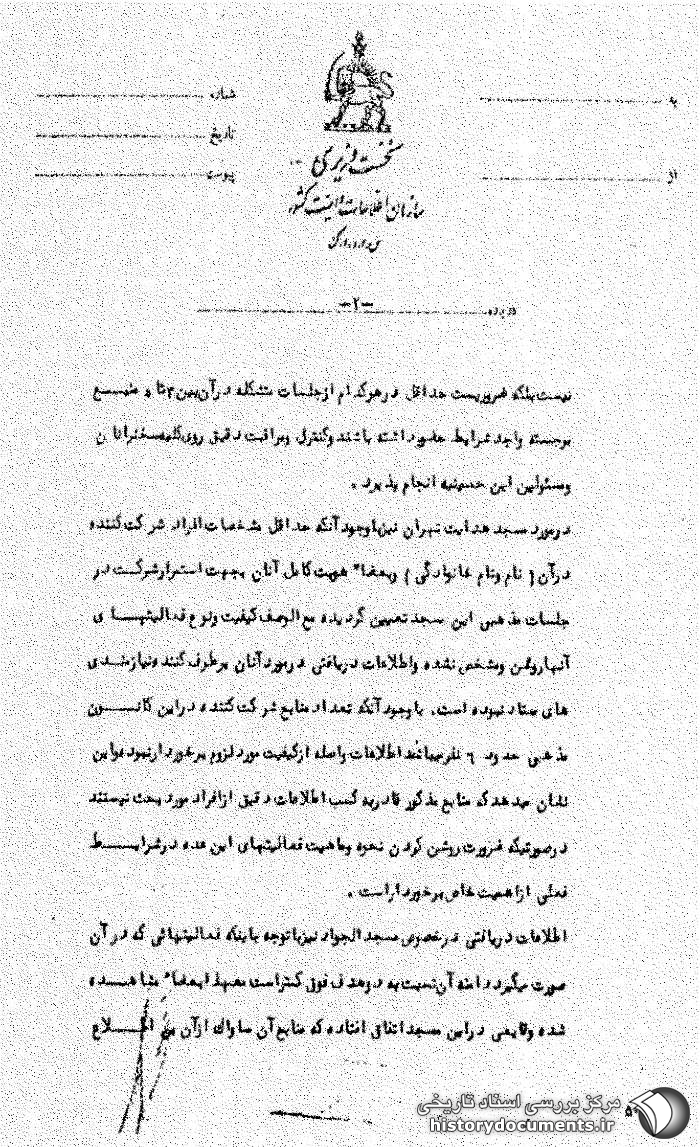 به
شماره
تاریخ
از
پیوست
نخست وزیری
سازمان اطلاعات و امنیت کشور
س.ا.و.ا.ک
درباره
-۲-
نیست بلکه ضروریست حداقل در هرکدام از جلسات متشکله در آن بین ۳ تا ۵ منبع
برجسته واجد شرایط حضور داشته باشند و کنترل و مراقبت دقیق روی کلیه سخنرانان
و مسئولین این حسینیه انجام پذیرد .
در مورد مسجد هدایت تهران نیز باوجود آنکه حداقل مشخصات افراد شرکت کننده
در آن ( نام و نام خانوادگی ) و بعضا" هویت کامل آنان بجهت استمرار شرکت در
جلسات مذهبی این مسجد تعیین گردیده مع الوصف کیفیت و نوع فعالیتهای
آنها روشن و مشخص نشده و اطلاعات دریافتی در مورد آنان برطرف کننده نیازمندی
های ستاد نبوده است. باوجود آنکه تعداد منابع شرکت کننده در این کانون
مذهبی حدود ۶ نفر میباشد اطلاعات واصله از کیفیت مورد لزوم برخوردار نبوده و این
نشان میدهد که منابع مذکور قادر به کسب اطلاعات دقیق از افراد مورد بحث نیستند
در صورتیکه ضرورت روشن کردن نحوه و ماهیت فعالیتهای این عده در شرایط
فعلی از اهمیت خاص برخوردار است .
اطلاعات دریافتی در خصوص مسجد الجواد نیز با توجه باینکه فعالیتهائی که در آن
صورت میگیرد دامنه آن نسبت به دو هدف فوق کمتر است معهذا بعضا" مشاهده
شده وقایعی در این مسجد اتفاق افتاده که منابع آن ساواک از آن بی اطلاع
مرکز بررسی اسناد تاریخی
historydocuments.ir